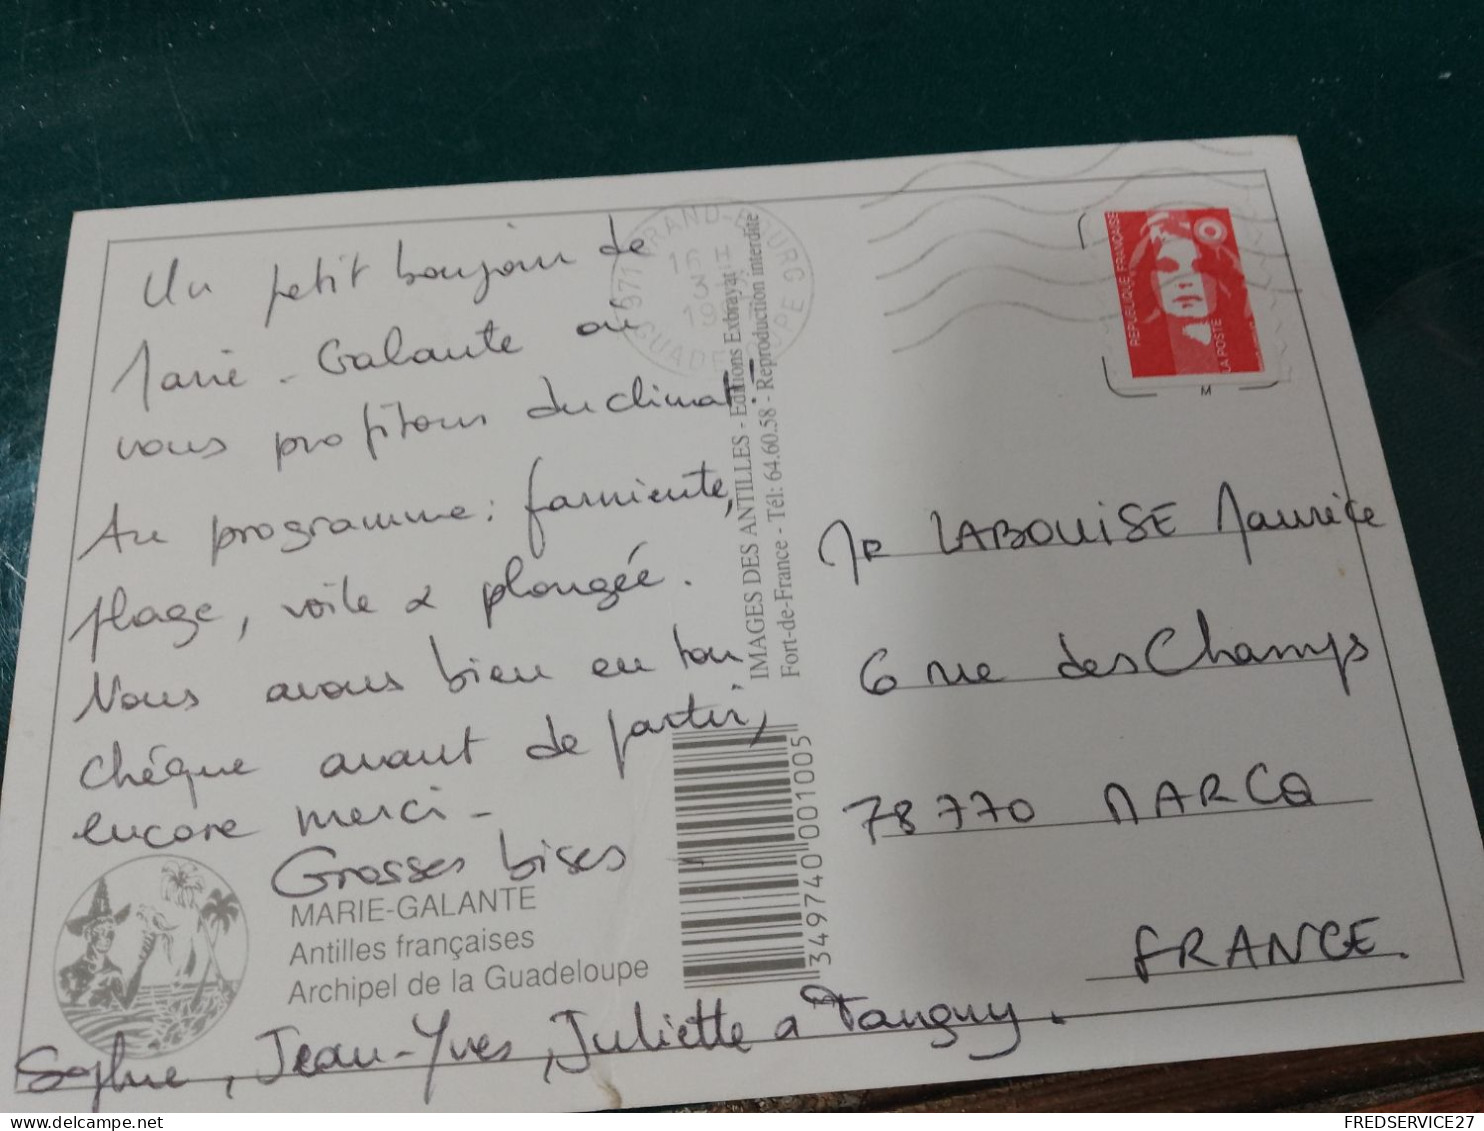 Un petit bonjour de
Marie-Galante où
nous profitons du climat.
Au programme : farniente,
plage, voile & plongée.
Nous avons bien eu ton
chèque avant de partir,
encore merci -
Grosses bises
Sophie, Jean-Yves, Juliette & Tanguy.
MARIE-GALANTE
Antilles françaises
Archipel de la Guadeloupe
IMAGES DES ANTILLES - Editions Exbrayat
Fort-de-France - Tél: 64.60.58 - Reproduction interdite
3497400001005
971 GRAND-BOURG
GUADELOUPE
REPUBLIQUE FRANÇAISE
LA POSTE
M
Mr LABOUISE Maurice
6 rue des Champs
78770 MARCQ
FRANCE.
FREDSERVICE27